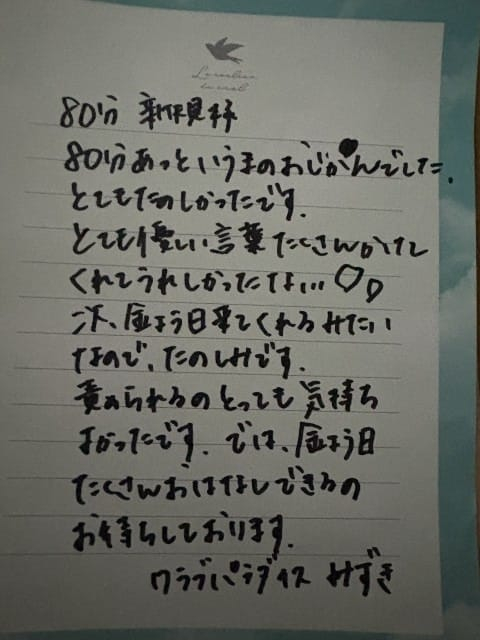 80分 新規様
80分あっというまのおじかんでした.
とてもたのしかったです.
とても優しい言葉たくさんかけて
くれてうれしかったなぁ… ♡♡
次、金よう日来てくれるみたい
なので、たのしみです.
責められるのとっても気持ち
よかったです. では、金よう日
たくさんおはなしできるの
お待ちしております.
クラブパラダイス みずき